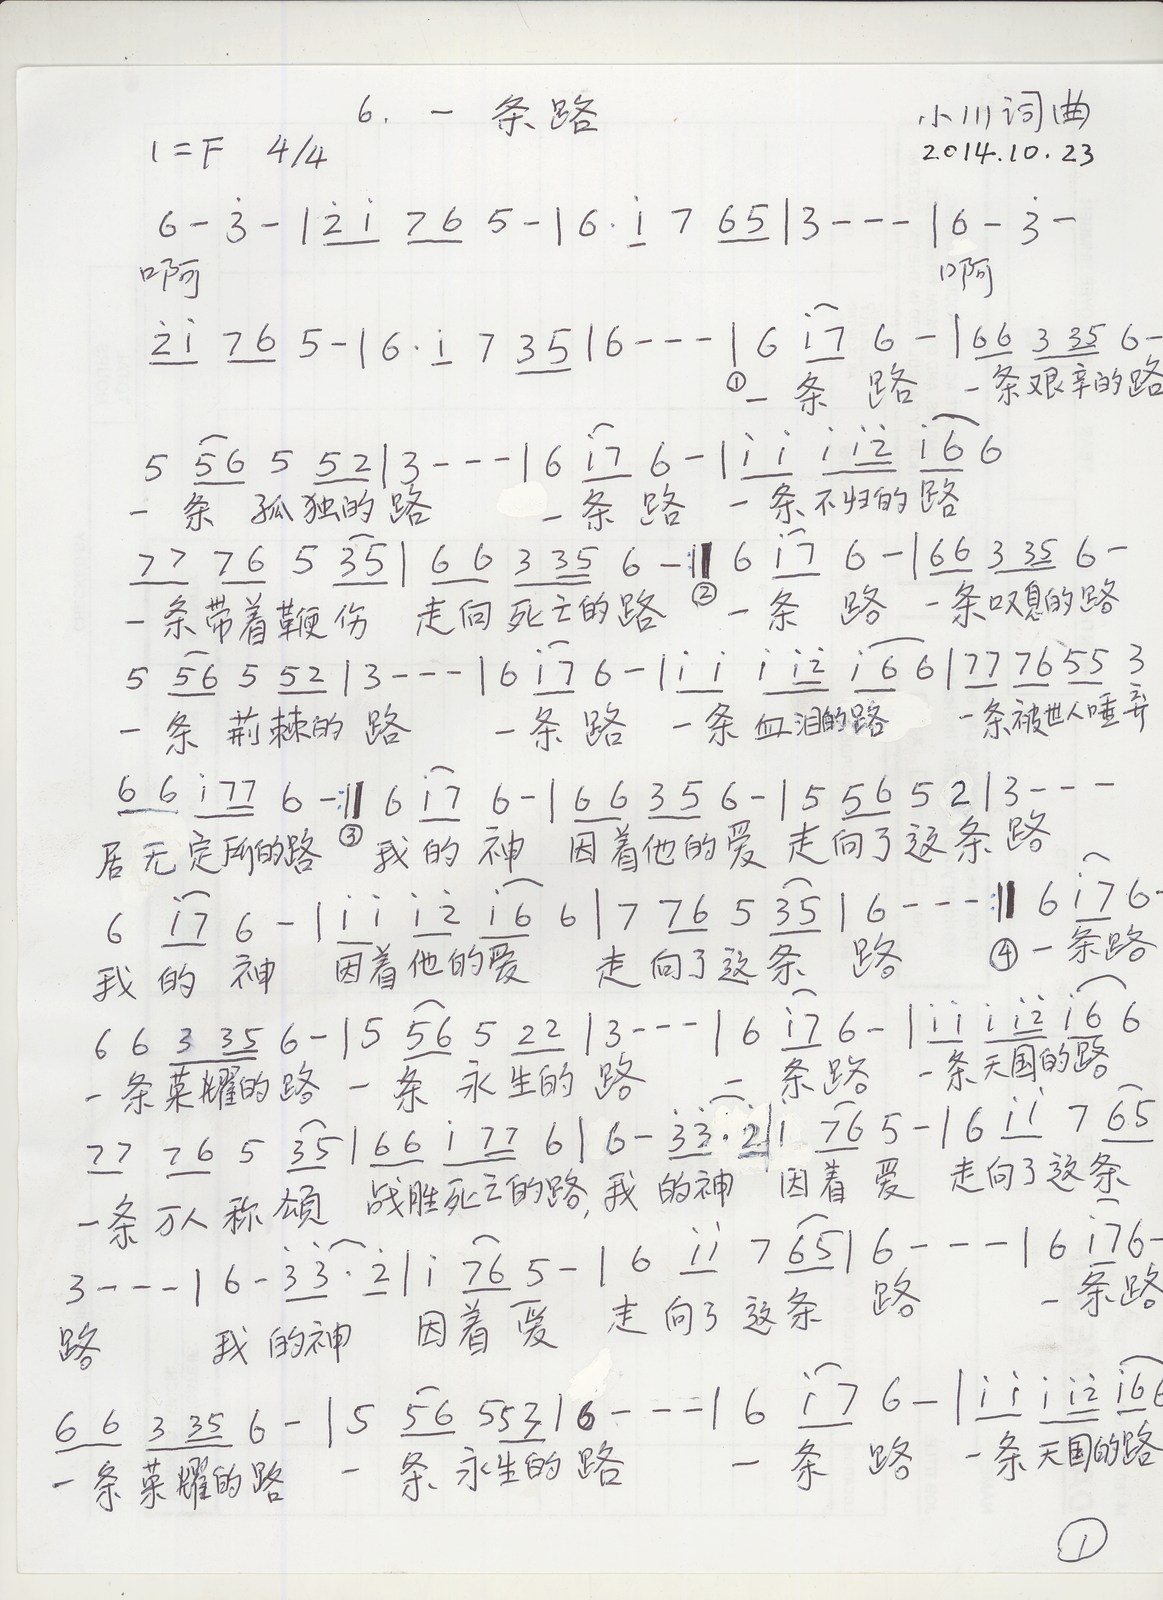 6. 一条路
小川词曲
1=F 4/4
2014.10.23
6 - 3̇ - | 2̇ 1̇ 7 6 5 - | 6 · 1̇ 7 6 5 | 3 - - - | 6 - 3̇ -
啊 啊
2̇ 1̇ 7 6 5 - | 6 · 1̇ 7 3 5 | 6 - - - | 6 1̇ 7 6 - | 6 6 3 3 5 6 -
① 一条路 一条艰辛的路
5 5 6 5 5 2 | 3 - - - | 6 1̇ 7 6 - | 1̇ 1̇ 1̇ 1̇ 2̇ 1̇ 6 6
一条孤独的路 一条路 一条不归的路
7 7 7 6 5 3 5 | 6 6 3 3 5 6 - :‖ 6 1̇ 7 6 - | 6 6 3 3 5 6 -
一条带着鞭伤 走向死亡的路 ② 一条路 一条叹息的路
5 5 6 5 5 2 | 3 - - - | 6 1̇ 7 6 - | 1̇ 1̇ 1̇ 1̇ 2̇ 1̇ 6 6 | 7 7 7 6 5 5 3
一条荆棘的路 一条路 一条血泪的路 一条被世人唾弃
6 6 1̇ 7 7 6 - :‖ 6 1̇ 7 6 - | 6 6 3 5 6 - | 5 5 6 5 2 | 3 - - -
居无定所的路 ③ 我的神 因着他的爱 走向了这条路
6 1̇ 7 6 - | 1̇ 1̇ 1̇ 2̇ 1̇ 6 6 | 7 7 6 5 3 5 | 6 - - - :‖ 6 1̇ 7 6 -
我的神 因着他的爱 走向了这条路 ④ 一条路
6 6 3 3 5 6 - | 5 5 6 5 2 2 | 3 - - - | 6 1̇ 7 6 - | 1̇ 1̇ 1̇ 1̇ 2̇ 1̇ 6 6
一条荣耀的路 一条永生的路 一条路 一条天国的路
7 7 7 6 5 3 5 | 6 6 1̇ 7 7 6 | 6 - 3̇ 3̇ · 2̇ | 1̇ 7 6 5 - | 6 1̇ 1̇ 7 6 5
一条万人称颂 战胜死亡的路, 我的神 因着爱 走向了这条
3 - - - | 6 - 3̇ 3̇ · 2̇ | 1̇ 7 6 5 - | 6 1̇ 1̇ 7 6 5 | 6 - - - | 6 1̇ 7 6 -
路 我的神 因着爱 走向了这条路 一条路
6 6 3 3 5 6 - | 5 5 6 5 5 3 | 6 - - - | 6 1̇ 7 6 - | 1̇ 1̇ 1̇ 1̇ 2̇ 1̇ 6 6
一条荣耀的路 一条永生的路 一条路 一条天国的路
①